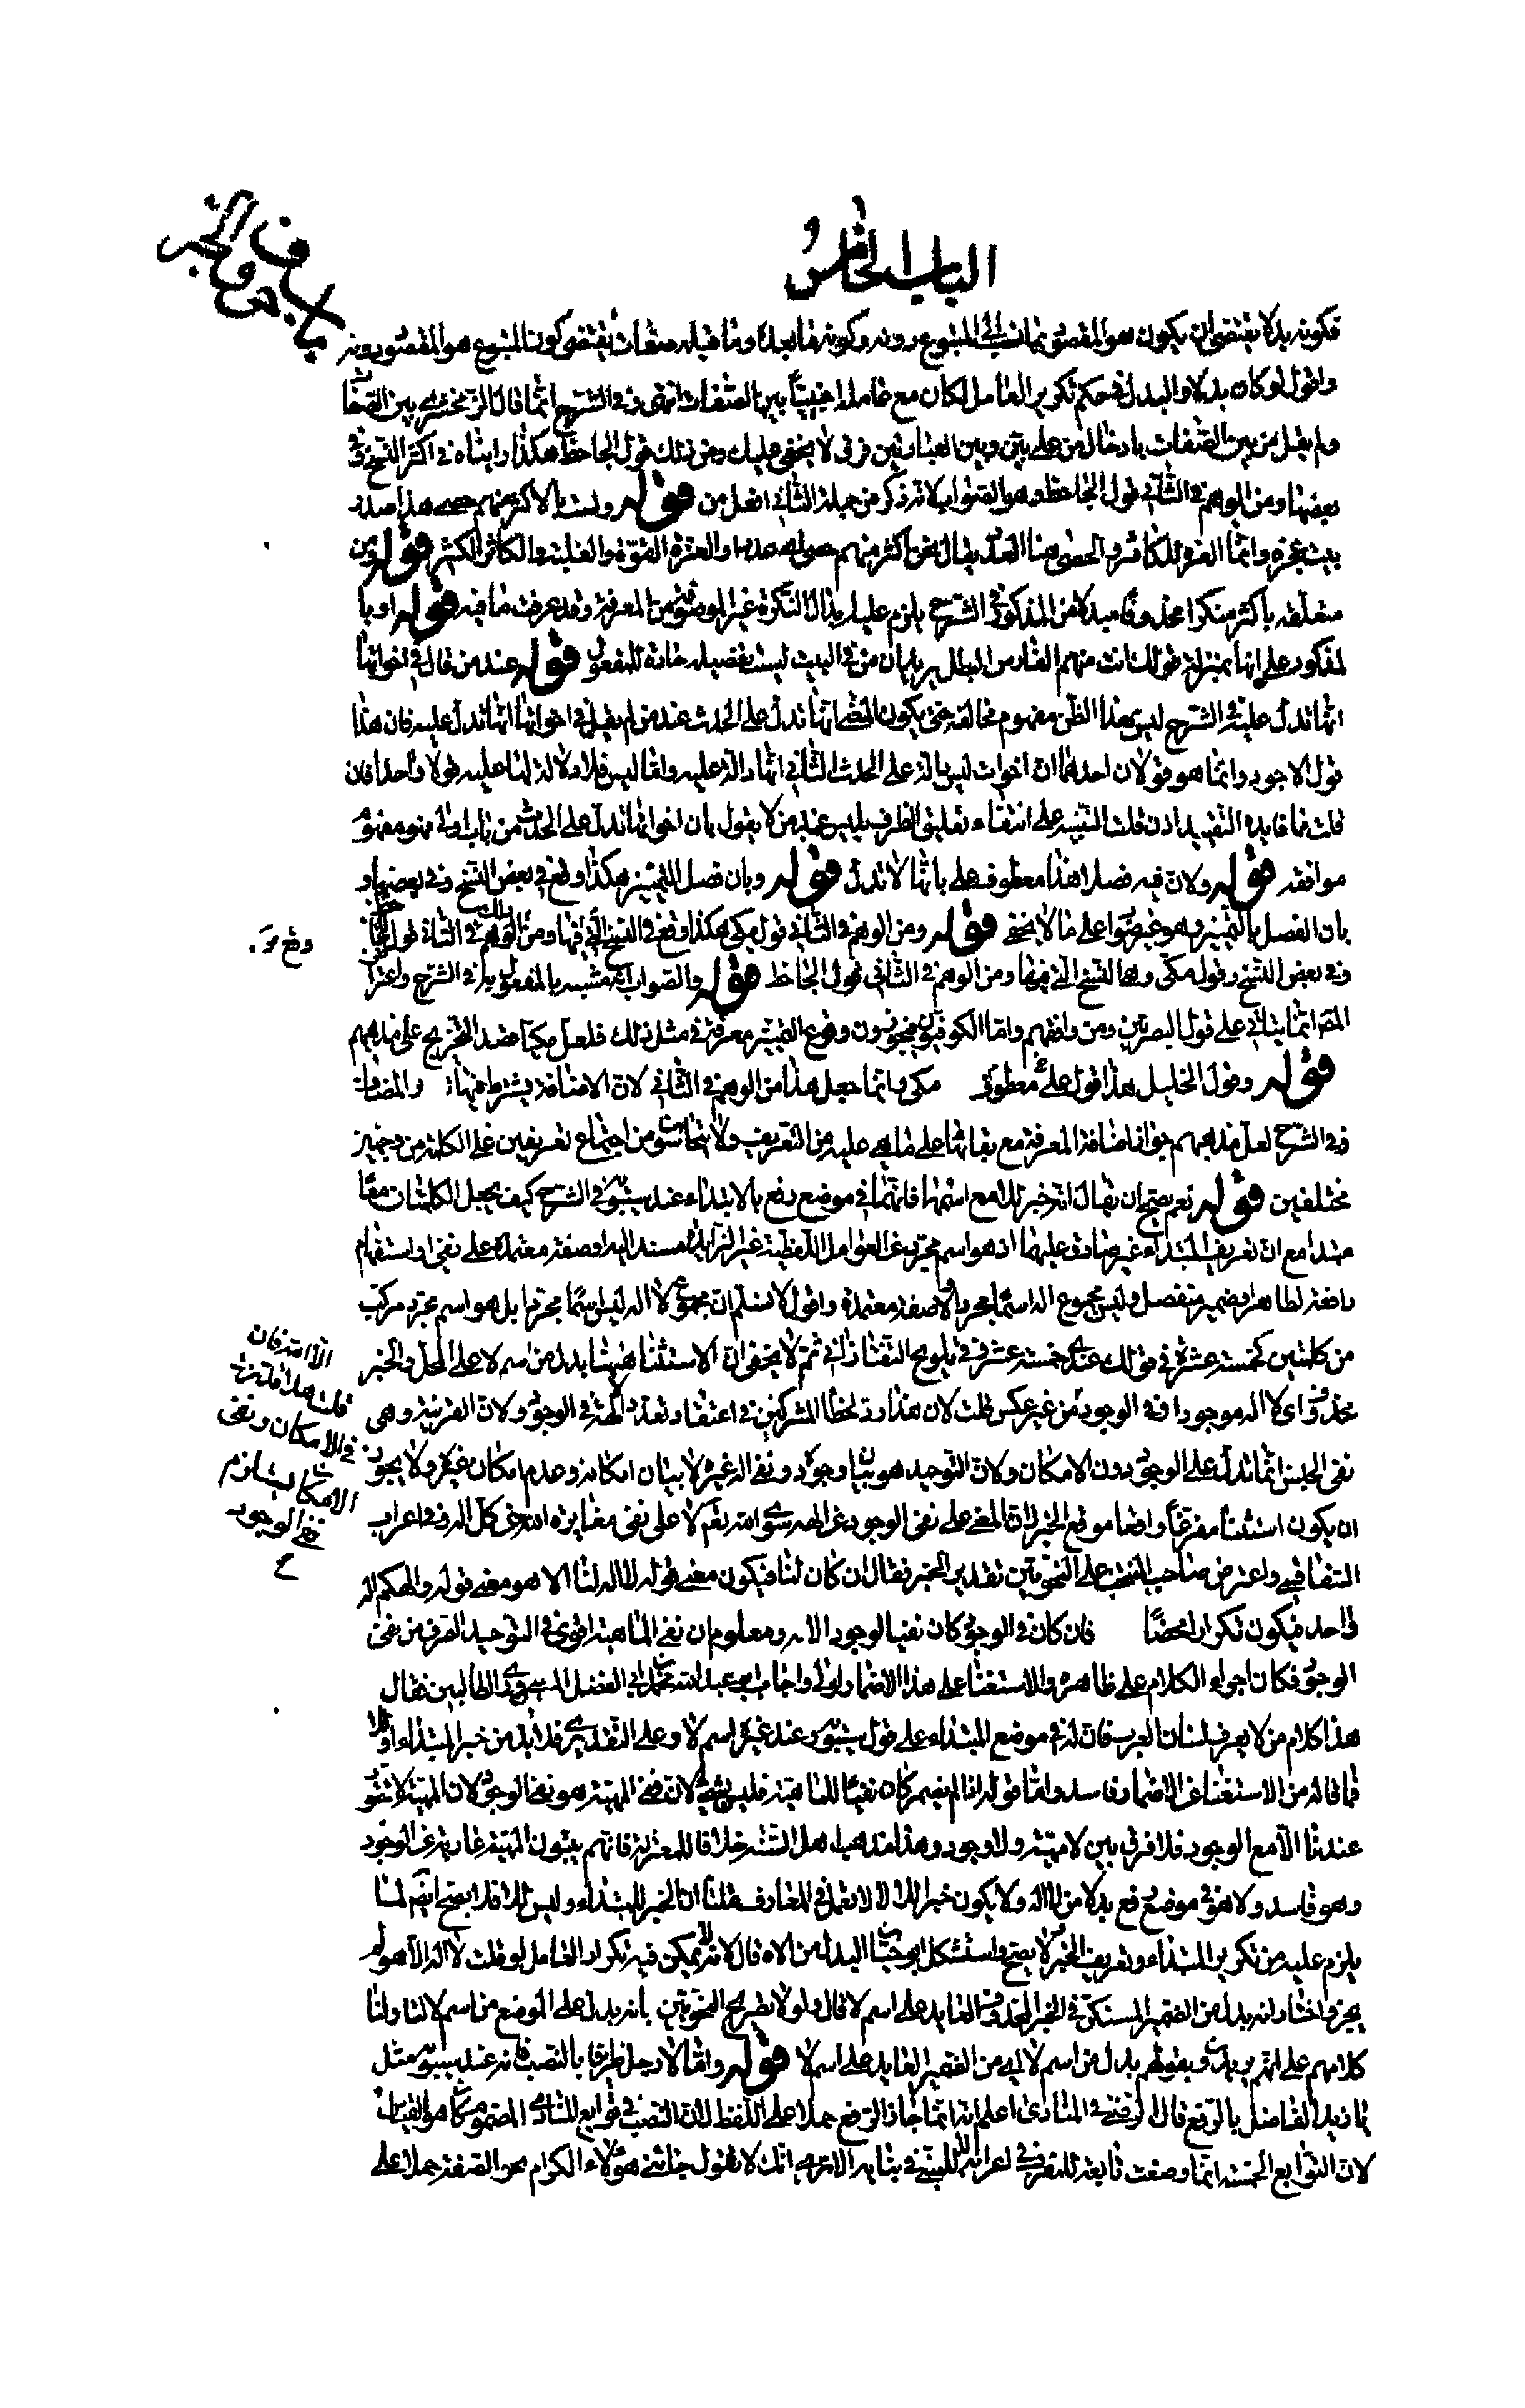 الباب الخامس
فكونه بدلا يقتضى ان يكون هو المقصود بما نسب الى المتبوع دونه وكونه ما بعده وما قبله صفات يقتضى كون المتبوع هو المقصود دونه
واقول لو كان بدلا والبدل فى حكم تكرير العامل لكان مع عامله اجنبيّا بين الصفات انتهى وفى الشرح انما قال الزمخشرى بين الصفات
ولم يقل من بين الصفات بادخال من على بين وبين العبارتين فرق لا يخفى عليك ومن ذلك قول الجاحظ هكذا رايناه فى اكثر النسخ وفى
بعضها ومن الوهم فى الثانى قول الجاحظ وهو الصواب لانه ذكر من جملة الثانى افعل من قوله ولست بالاكثر منهم حصى هذا صدر
بيت عجزه وانما العزة للكاثر والحصى هنا العدد يقال نحن اكثر منهم حصى اى عددا والعزة القوة والغلبة والكاثر الكثير قوله ومن
متعلقه باكثر منكرا محذوفا مبدلا من المذكور فى الشرح يلزم عليه ابدال النكرة غير الموصوفة من المعرفة وقد عرفت ما فيه قوله او با
لمذكور على انها بمنزلة قولك انت منهم الفارس البطل يريد بان من فى البيت ليست تفضيلية جارة للمفضول قوله عند من قال فى اخواتها
انها تدل عليه فى الشرح ليس هذا الظن مفهوم مخالفة حتى يكون المعنى انها تدل على الحدث عند من لم يقل فى اخواتها انها تدل عليه فان هذا
قول لا وجود له وانما هو قولان احدهما ان اخوات ليس دالة على الحدث الثانى انها دالة عليه واما ليس فلا دلالة لها عليه قولا واحدا فان
قلت فما فايدة التقييد اذن قلت التنبيه على انتفاء تعليق الظرف بليس عند من لا يقول بان اخواتها تدل على الحدث من باب اولى فهو مفهوم
موافقة قوله ولان فيه فصلا هذا معطوف على بانها لا تدل قوله وبان فصل التمييز هكذا وقع فى بعض النسخ وفى بعضها و
بان الفصل بالتمييز وهو غير صواب على ما لا يخفى قوله ومن الوهم فى الثانى قول مكى هكذا وقع فى النسخ التى فيها ومن الوهم فى الثانى قول الجاحظ
وفى بعض النسخ وقوله مكى وهما النسخ التى فيها ومن الوهم فى الثانى قول الجاحظ قوله والصواب انه مشبه بالمفعول به فى الشرح واعتراض
المص انما يتاتى على قول البصريين ومن وافقهم واما الكوفيون فيجوزون وقوع التمييز معرفة فى مثل ذلك فلعل مكيا قصد التخريج على مذهبهم
قوله وقول الخليل هذا قول على معطوف مكى وانما جعل هذا من الوهم فى الثانى لان الاضافة يشترط فيها والمضاف
فى الشرح لعل مذهبهم جواز اضافة المعرفة مع بقائها على ما هى عليه من التعريف ولا يتحاشون من اجتماع تعريفين على الكلمة من وجهين
مختلفين قوله نعم يصح ان يقال انه خبر للا مع اسمها فانهما فى موضع رفع بالابتداء عند سيبويه فى الشرح كيف يجعل الكلمتان معا
مبتدا مع ان تعريف المبتداء غير صادق عليهما اذ هو اسم مجرد عن العوامل اللفظية غير الزايدة مسند اليه او صفة معتمدة على نفى او استفهام
رافعة لظاهر او ضمير منفصل وليس مجموع لا اله اسما مجردا ولا صفة معتمدة واقول لا نسلم ان مجموع لا اله ليس اسما مجردا بل هو اسم مجرد مركب
من كلمتين كخمسة عشرة فى قولك عندى خمسة عشر وفى تلويح التفتازانى ثم لا يخفى ان الاستثناء هيهنا بدل من اسم لا على المحل والخبر
محذوف اى لا اله موجودا فى الوجود من غير عكس قلت لان هذا رد لخطأ المشركين فى اعتقاد تعدد الالهة فى الوجود ولان القرينة وهى
نفى الجنس انما تدل على الوجود دون الامكان ولان التوحيد هو بيان وجوده ونفى اله غيره لا بيان امكانه وعدم امكان غيره ولا يجوز
ان يكون استثناء مفرغا واقعا موقع الخبر لان المعنى على نفى الوجود عن اله سوى الله تعالى لا على نفى مغايرة الله عن كل اله وفى اعراب
السفاقسى واعترض صاحب المنتخب على النحويين تقدير الخبر فقال ان كان لنا فيكون معنى قوله لا اله لنا الا هو معنى قوله والهكم اله
واحد فيكون تكرارا محضا فان كان فى الوجود كان نفيا لوجود الاله ومعلوم ان نفى الماهية اقوى فى التوحيد الصرف من نفى
الوجود فكان اجراء الكلام على ظاهره والاستغناء على هذا الاضمار اولى واجاب ابو عبد الله محمد بن ابى الفضل المرسى فى رى الظمآن فقال
هذا كلام من لا يعرف لسان العرب فان لا اله فى موضع المبتداء على قول سيبويه وعند غيره اسم لا وعلى التقديرين فلا بد من خبر المبتداء او للا
فما قاله من الاستغناء عن الاضمار فاسد واما قوله اذا لم يضمر كان نفيا للماهية فليس بشىء لان نفى المهية هو نفى الوجود لان المهية لا تتصور
عندنا الا مع الوجود فلا فرق بين لا مهية ولا وجود وهذا مذهب اهل السنة خلافا للمعتزلة فانهم يثبتون المهية عارية عن الوجود
وهو فاسد ولا هو فى موضع رفع بدلا من لا اله ولا يكون خبرا للا لان لا لا تعمل فى المعارف قلنا ان الخبر للمبتداء وليس للا فلا يصح ايضا لما
يلزم عليه من تكرير المبتداء وتعريف الخبر لا يصح واستشكل ابو حيان البدل من الاله قال لانه لا يمكن فيه تكرار العامل لو قلت لا اله الا هو لم
يجز واختار انه بدل من الضمير المستكن فى الخبر المحذوف العايد على اسم لا قال ولولا تصريح النحويين بانه بدل على الموضع من اسم لا لتاولنا
كلامهم على انهم يريدون بقولهم بدل من اسم لا اى من الضمير العايد على اسم لا قوله واما لا رجل ظريفا بالنصب فانه عند سيبويه مثل
يا زيد الفاضل بالرفع قال الرضى فى المنادى اعلم انه انما جاز الرفع حملا على اللفظ لان النصب فى توابع المنادى المضموم كما هو القياس
لان التوابع الخمسة انما وضعت تابعة للمعرب فى اعرابه لا للمبنى فى بنائه الا ترى انك لا تقول جائنى هؤلاء الكرام بجر الصفة حملا على
الا الله فان
قلت هلا قدرت
فى الامكان ونفى
الامكان يستلزم
نفى الوجود